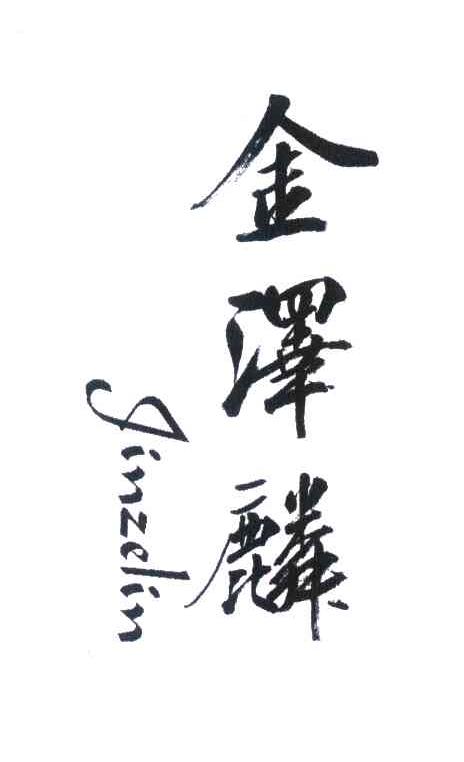 金澤麟
Jinzelin